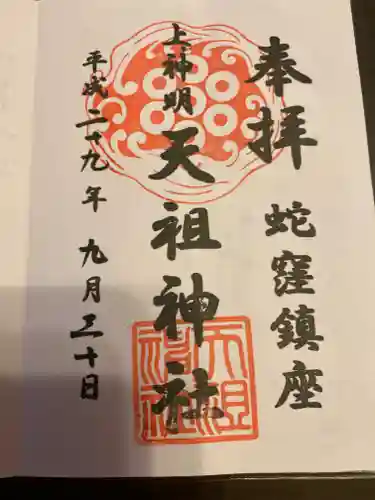 奉拝
蛇窪鎮座
上神明
天祖神社
天祖神社
平成二十九年 九月三十日